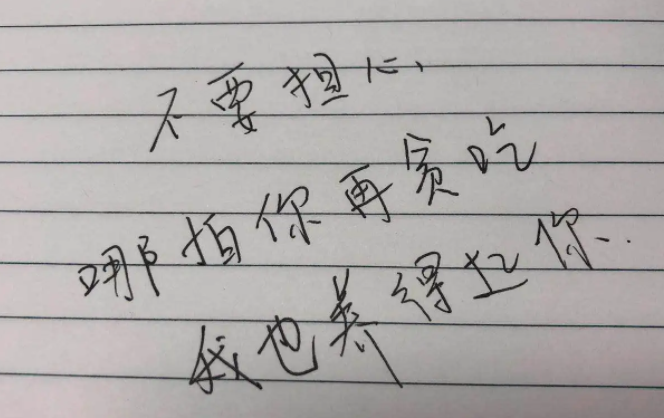 不要担心
哪怕你再贪吃
我也养得起你..